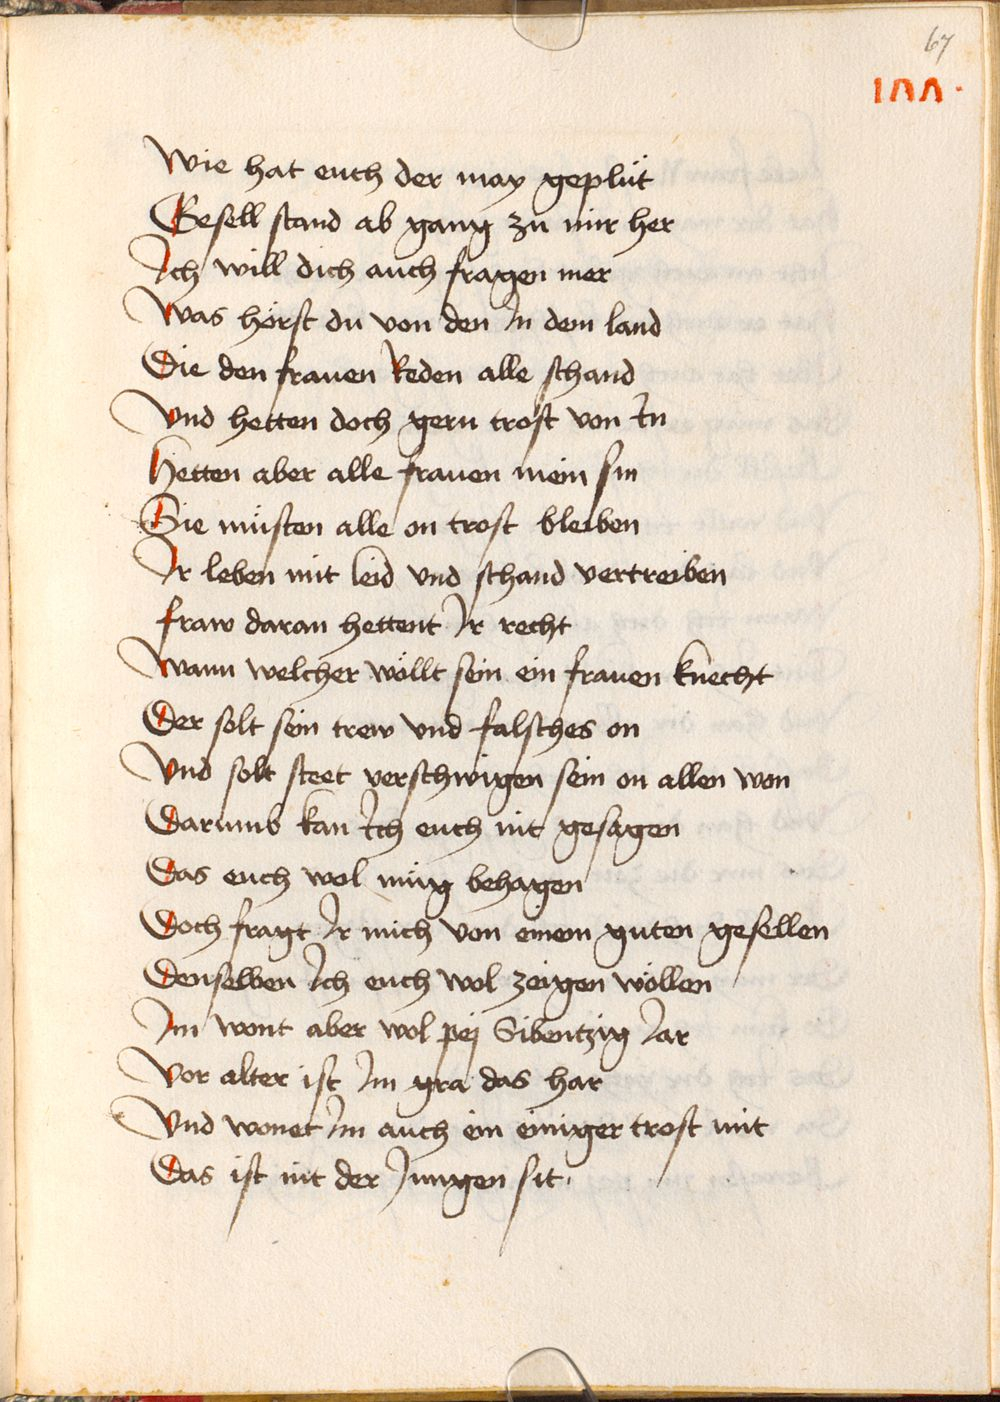 67
177.
Wie hat euch der may geplüt
Gesell stand ab gang zu mir her
Ich will dich auch fragen mer
Was hörst du von den In dem land
Die den frauen Reden alle schand
Vnd hetten doch gern trost von In
Hetten aber alle frauen mein sin
Sie müsten alle on trost bleiben
Ir leben mit leid vnd schand vertreiben
fraw daran hettent Ir recht
Wann welcher wöllt sein ein frauen knecht
Der solt sein trew vnd falsches on
Vnd solt steet verschwigen sein on allen won
Darumb kan Ich euch nit gesagen
Das euch wol müg behagen
Doch fragt Ir mich von einem guten gesellen
Denselben Ich euch wol zeigen wöllen
Im wont aber wol pej Sibentzig Jar
Vor alter ist Im gra das har
Vnd wonet Im auch ein einiger trost mit
Das ist nit der Jungen sit.